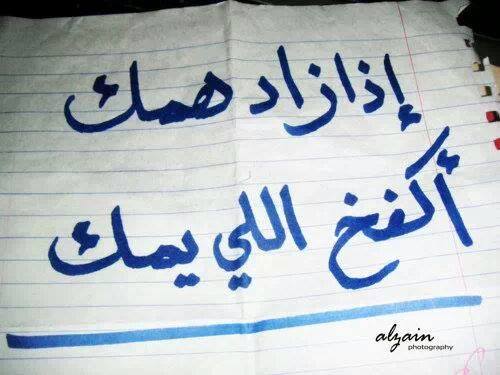 إذا زاد همك
أكفخ اللي يمك
alzain
photography